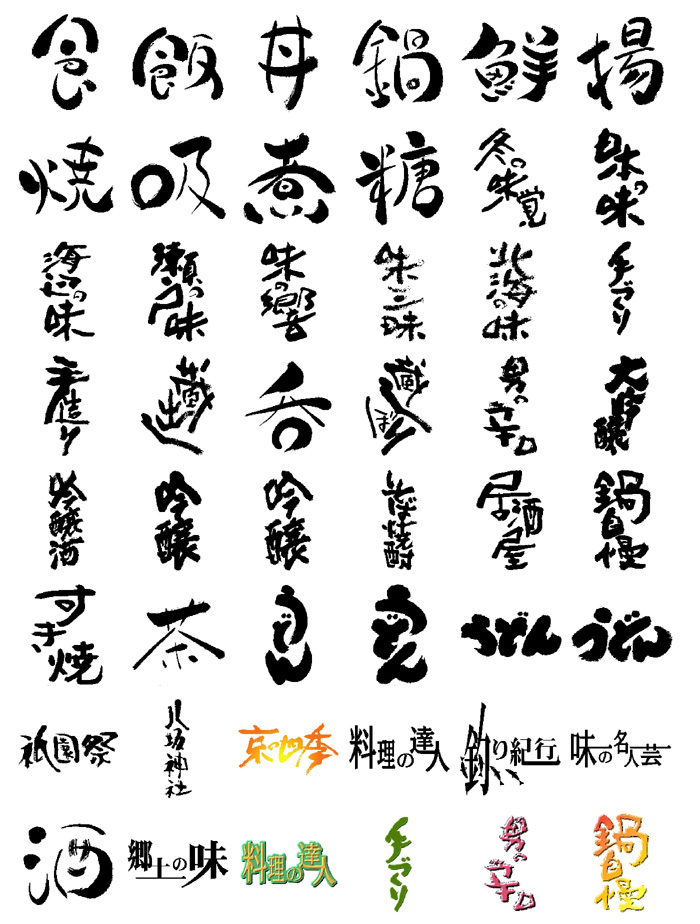 食 飯 丼 鍋 鮮 揚
焼 吸 煮 糖 冬の味覚 日本の味
海辺の味 瀬の味 味の響 味三昧 北海の味 手づくり
手造り 蔵出し 呑 蔵しぼり 男の辛口 大吟醸
吟醸酒 吟醸 吟醸 そば焼酎 居酒屋 鍋自慢
すき焼 茶 うどん うどん うどん うどん
祇園祭 八坂神社 京の四季 料理の達人 釣り紀行 味の名人芸
酒 郷土の味 料理の達人 手づくり 男の辛口 鍋自慢